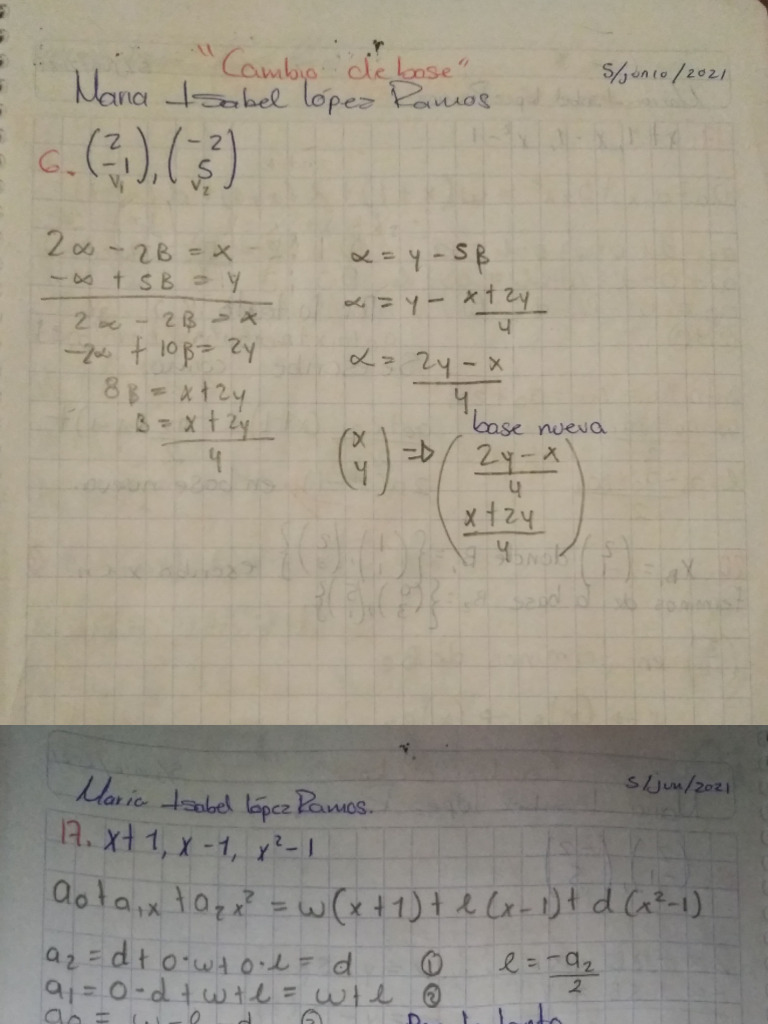 "Cambio de base"
5/junio/2021
Maria Isabel López Ramos
6. (2 -1), (-2 5)
v1 v2
2α - 2β = x
-α + 5β = y
2α - 2β = x
-2α + 10β = 2y
8β = x + 2y
β = x + 2y / 4
α = y - 5β
α = y - x + 2y / 4
α = 2y - x / 4
base nueva
(x y) ⇒ (2y - x / 4 x + 2y / 4)
Maria Isabel López Ramos.
5/jun/2021
17. x+1, x-1, x²-1
a₀ + a₁x + a₂x² = w(x+1) + l(x-1) + d(x²-1)
a₂ = d + 0·w + 0·l = d ① l = -a₂ / 2
a₁ = 0·d + w + l = w + l ②